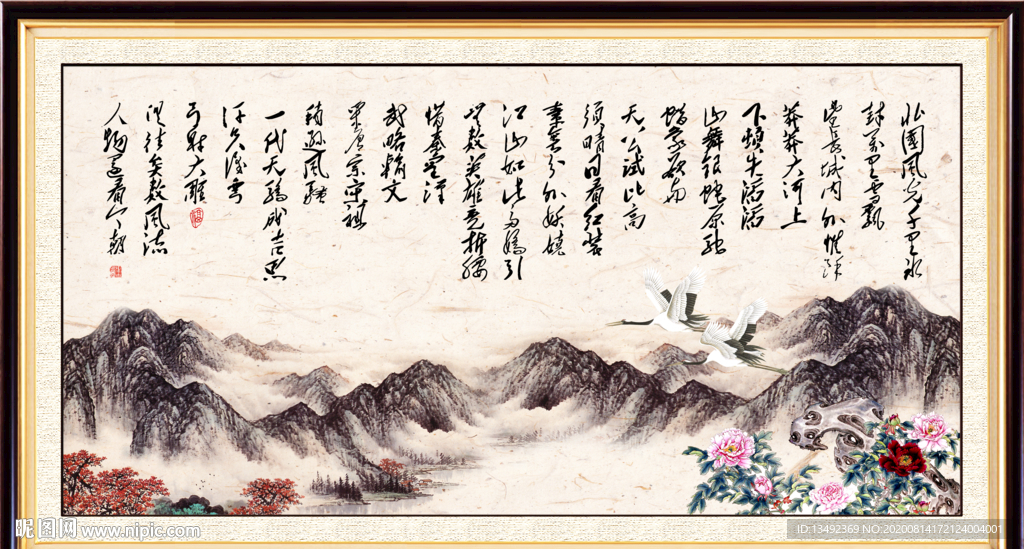 北國風光千里冰
封万里雪飘
望長城内外惟馀
莽莽大河上
下頓失滔滔
山舞银蛇原驰
蜡象欲与
天公試比高
须晴日看红装
素裹分外妖娆
江山如此多娇引
无数英雄竞折腰
惜秦皇汉
武略輸文
采唐宗宋祖
稍逊风骚
一代天骄成吉思
汗只识弯
弓射大雕
俱往矣数風流
人物还看今朝
昵图网 www.nipic.com
ID:13492369 NO:20200814172124004001